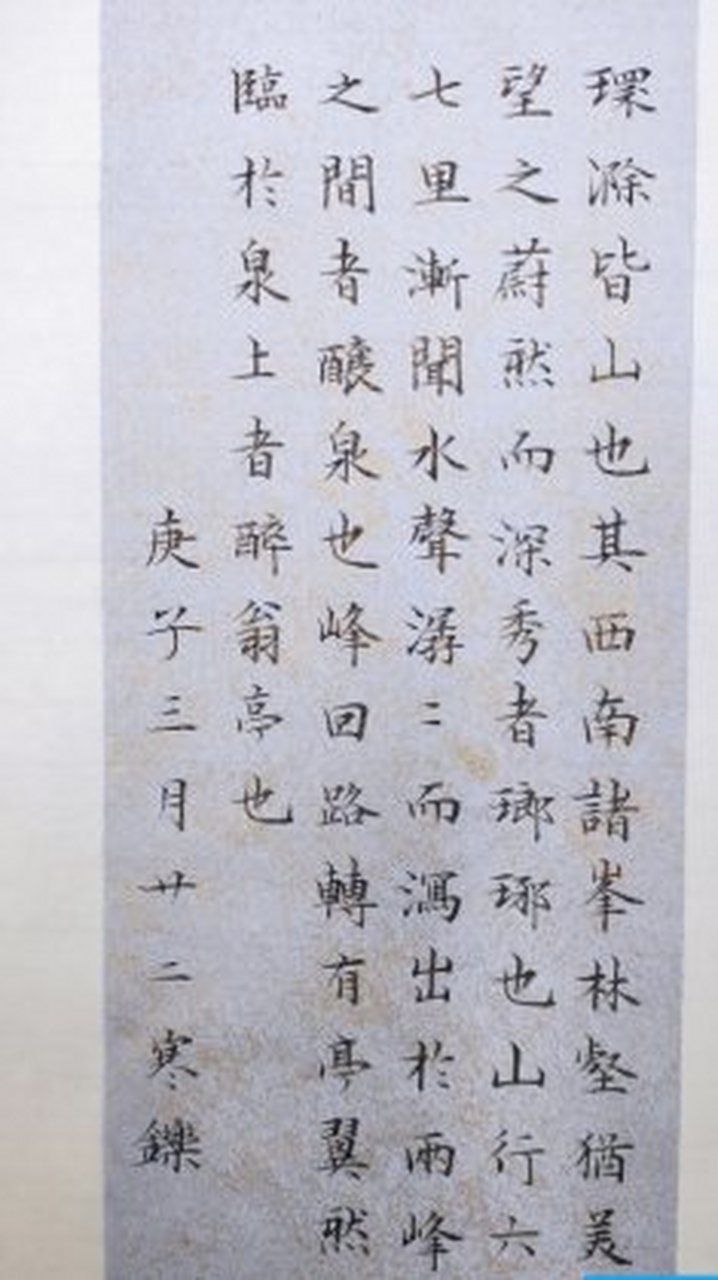 環滁皆山也其西南諸峯林壑猶美
望之蔚然而深秀者瑯琊也山行六
七里漸聞水聲潺二而瀉出於兩峰
之間者釀泉也峰回路轉有亭翼然
臨於泉上者醉翁亭也
庚子三月廿二寒鑠